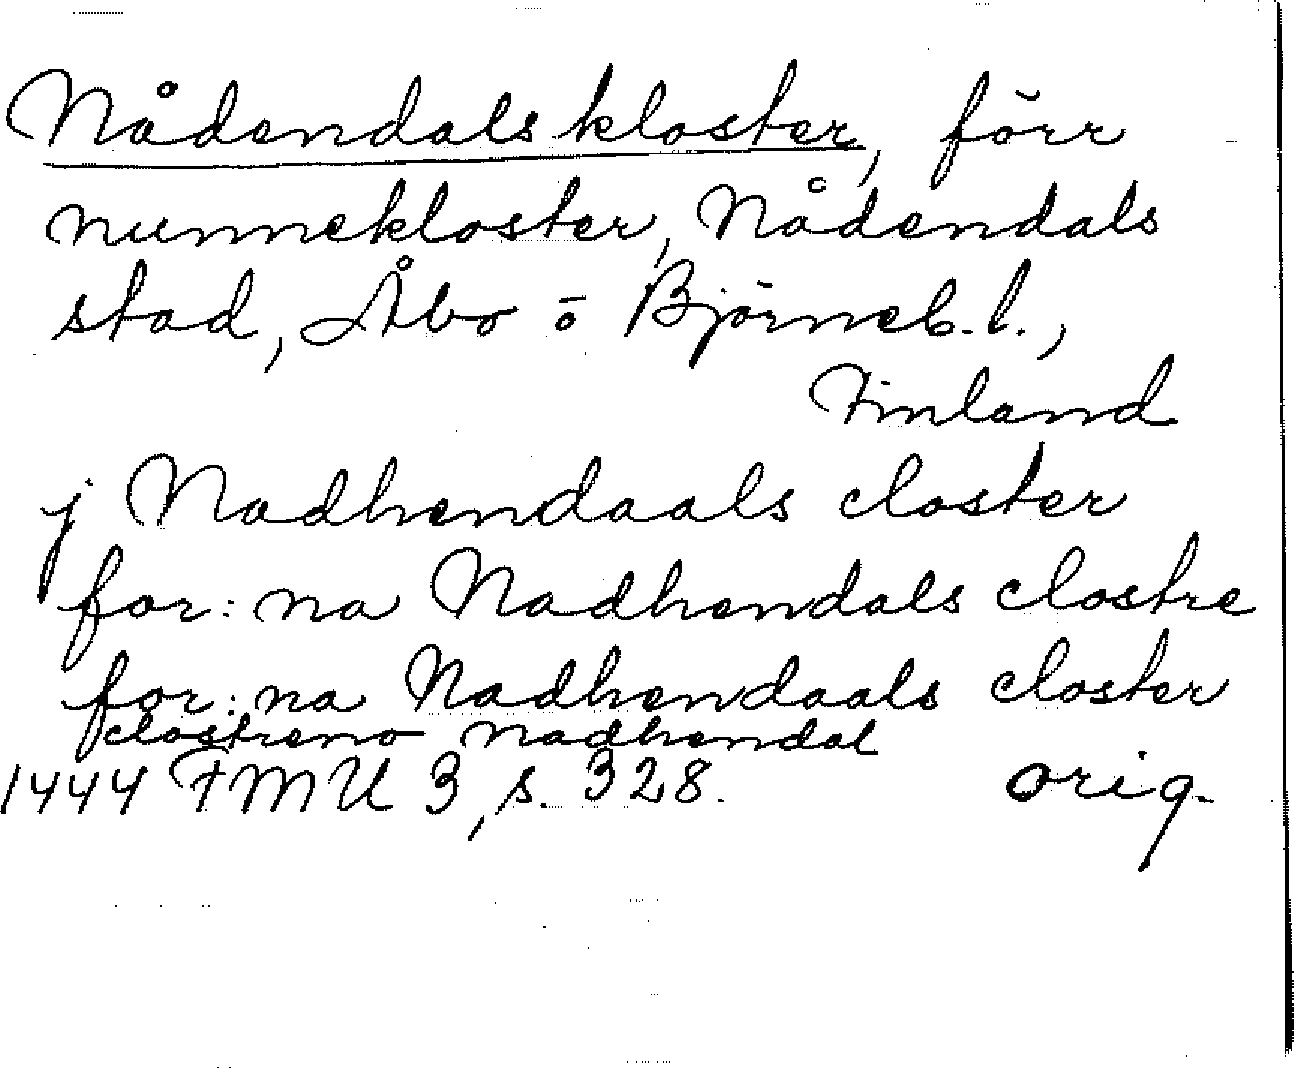 Nådendals kloster, förr
nunnekloster, Nådendals
stad, Åbo o Björneb. l.,
Finland
j Nadhendaals closter
for: na Nadhendals clostre
for: na Nadhendaals closter
clostreno Nadhendal
1444 FMU 3, s. 328. orig.